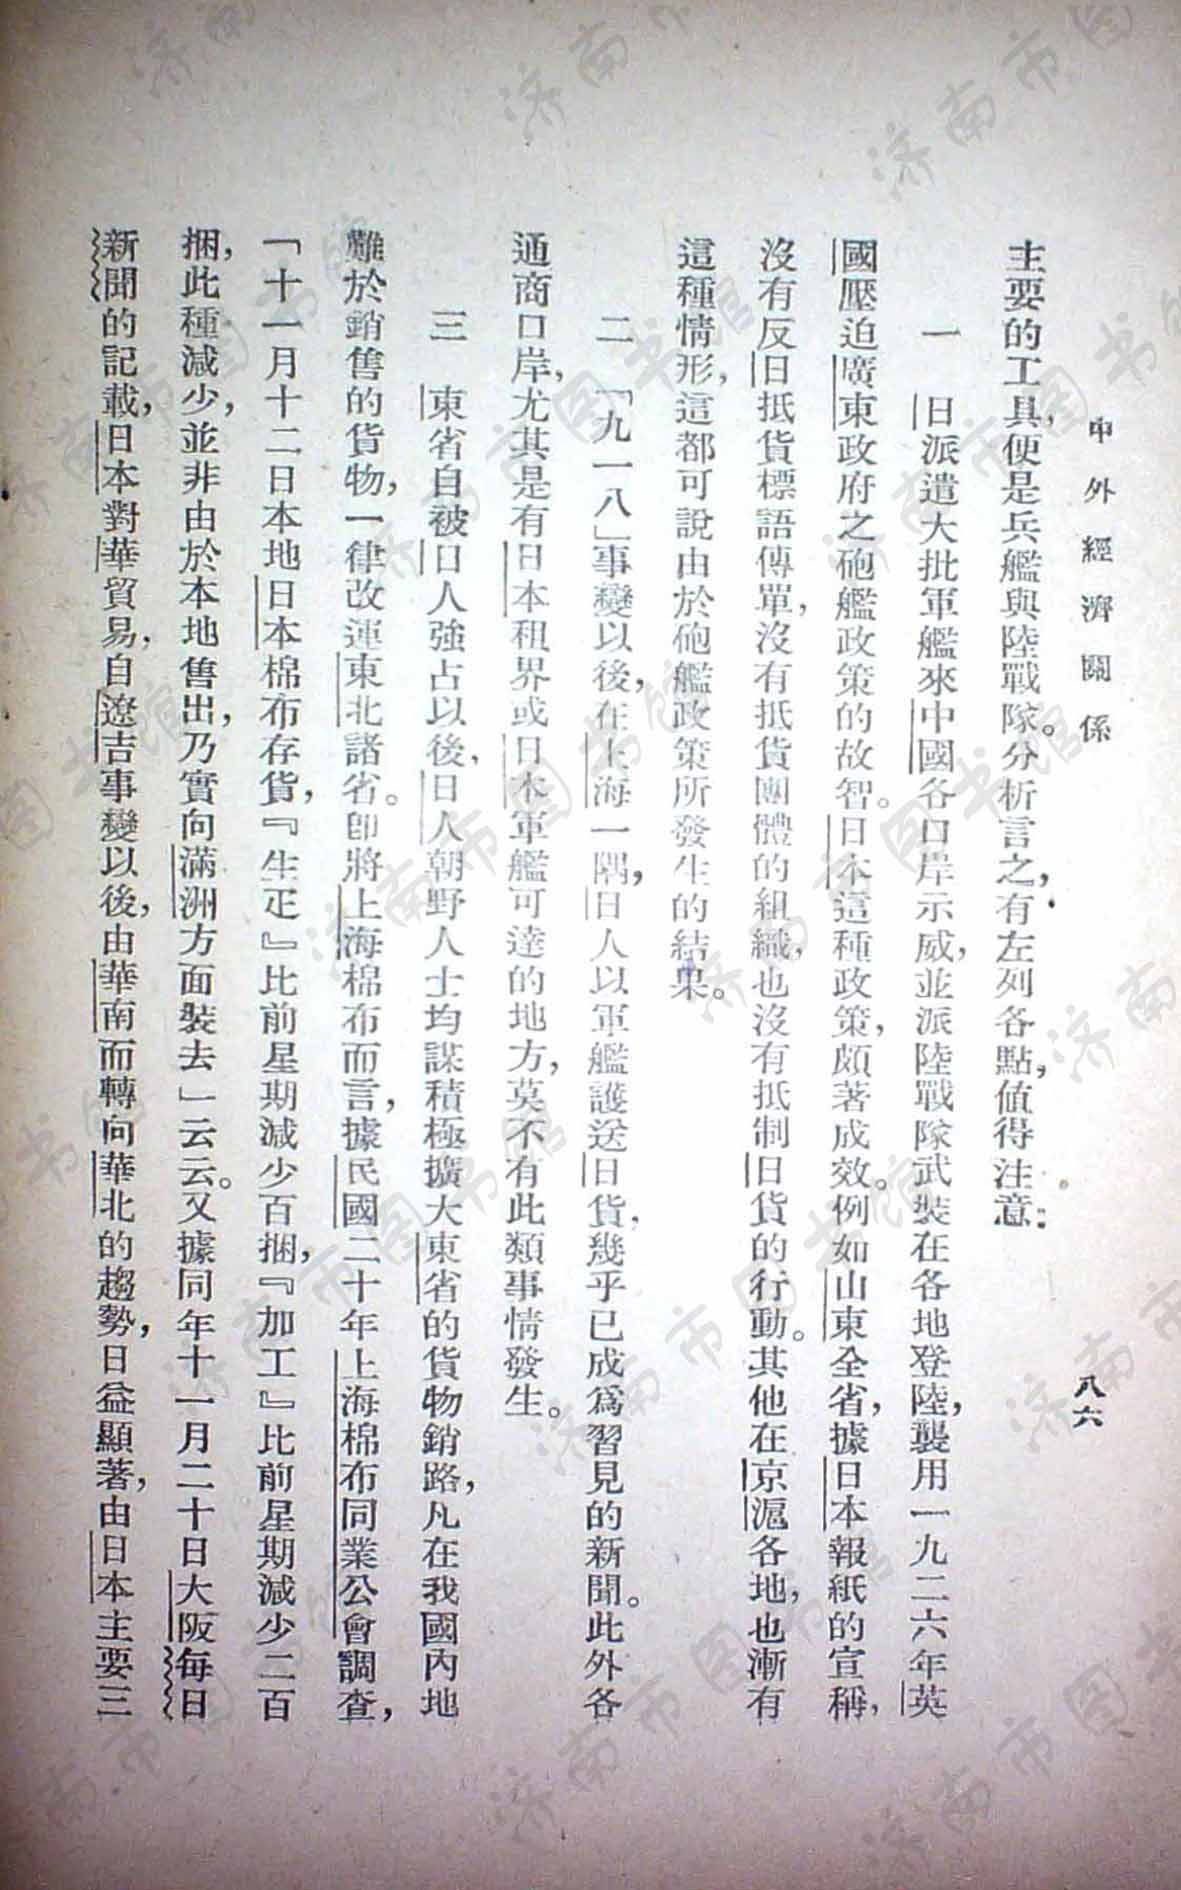 中外經濟關係
八六
主要的工具，便是兵艦與陸戰隊。分析言之，有左列各點，值得注意：
一　日派遣大批軍艦來中國各口岸示威，並派陸戰隊武裝在各地登陸，襲用一九二六年英
國壓迫廣東政府之砲艦政策的故智。日本這種政策，頗著成效。例如山東全省，據日本報紙的宣稱，
沒有反日抵貨標語傳單，沒有抵貨團體的組織，也沒有抵制日貨的行動。其他在京滬各地，也漸有
這種情形，這都可說由於砲艦政策所發生的結果。
二　「九一八」事變以後，在上海一隅，日人以軍艦護送日貨，幾乎已成爲習見的新聞。此外各
通商口岸，尤其是有日本租界或日本軍艦可達的地方，莫不有此類事情發生。
三　東省自被日人強占以後，日人朝野人士均謀積極擴大東省的貨物銷路，凡在我國內地
難於銷售的貨物，一律改運東北諸省。卽將上海棉布而言，據民國二十年上海棉布同業公會調查，
「十一月十二日本地日本棉布存貨，『生疋』比前星期減少百捆，『加工』比前星期減少二百
捆，此種減少，並非由於本地售出，乃實向滿洲方面裝去」云云。又據同年十一月二十日大阪每日
新聞的記載，日本對華貿易，自遼吉事變以後，由華南而轉向華北的趨勢，日益顯著，由日本主要三
济南市图书馆